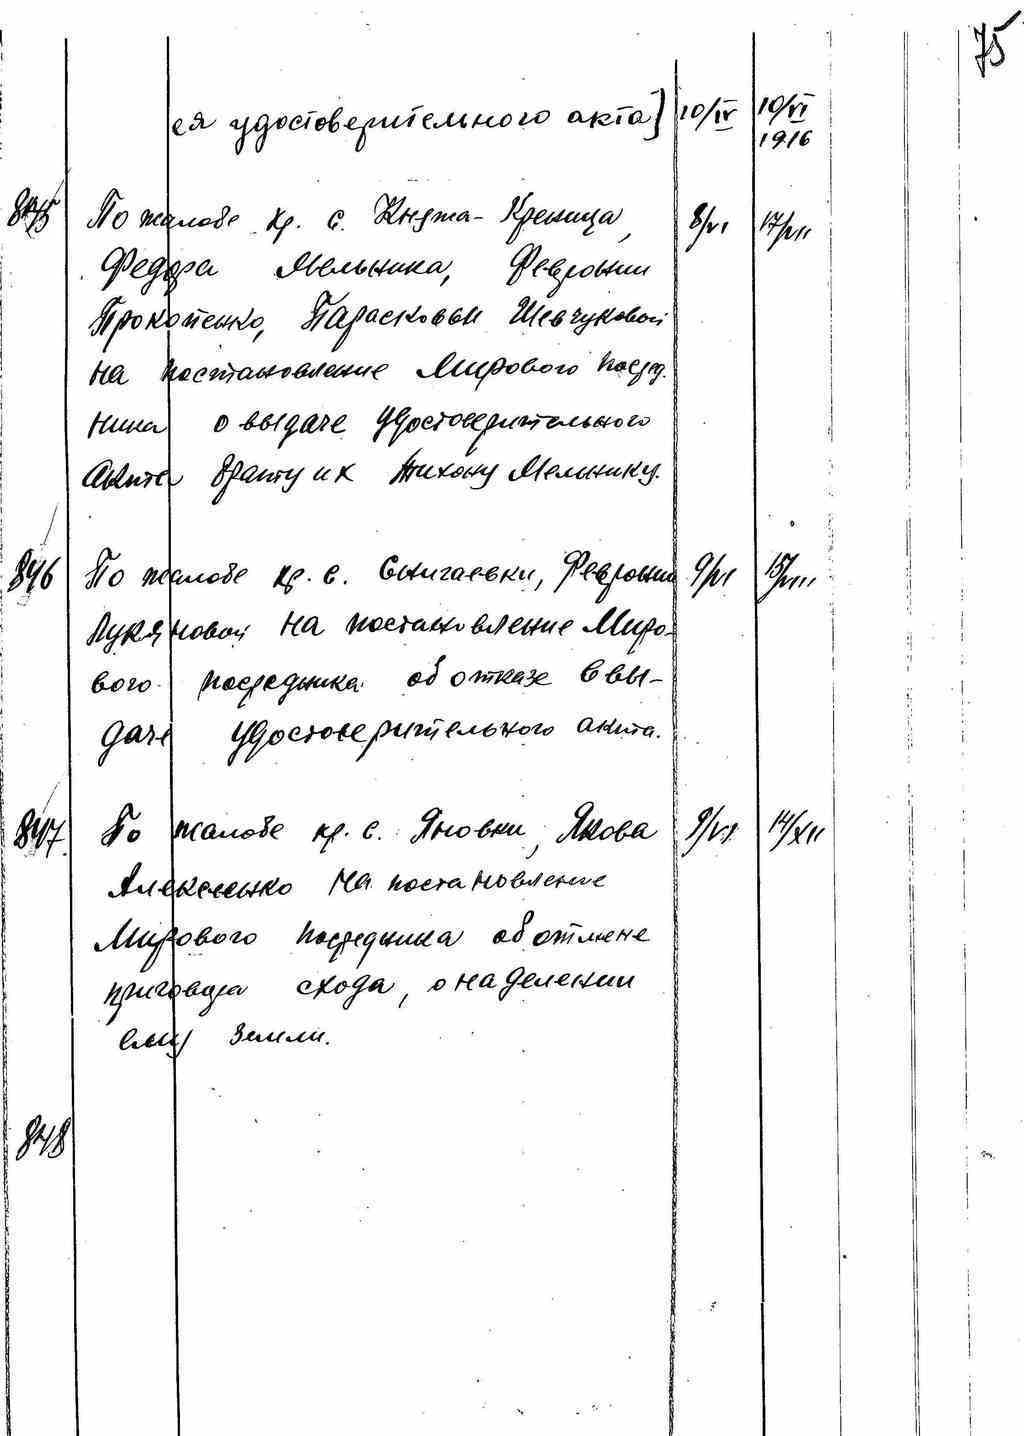 75
ея удостоверительного акта] 10/IV 10/VI
1916
845 По жалобе кр. с. Княжа-Креница, 8/VI 17/VII
Федора Мельника, Февронии
Прокопенко, Парасковьи Шевчуковой
на постановление Мирового посред-
ника о выдаче удостоверительного
акта брату их Тихону Мельнику.
846 По жалобе кр. с. Снигаевки, Февронии 9/VI 15/VIII
Лукяновой на постановление Миро-
вого посредника об отказе в вы-
даче удостоверительного акта.
847 По жалобе кр. с. Яновки, Якова 9/VI 14/XII
Алексеенко на постановление
Мирового посредника об отмене
приговора схода, о наделении
ему земли.
848